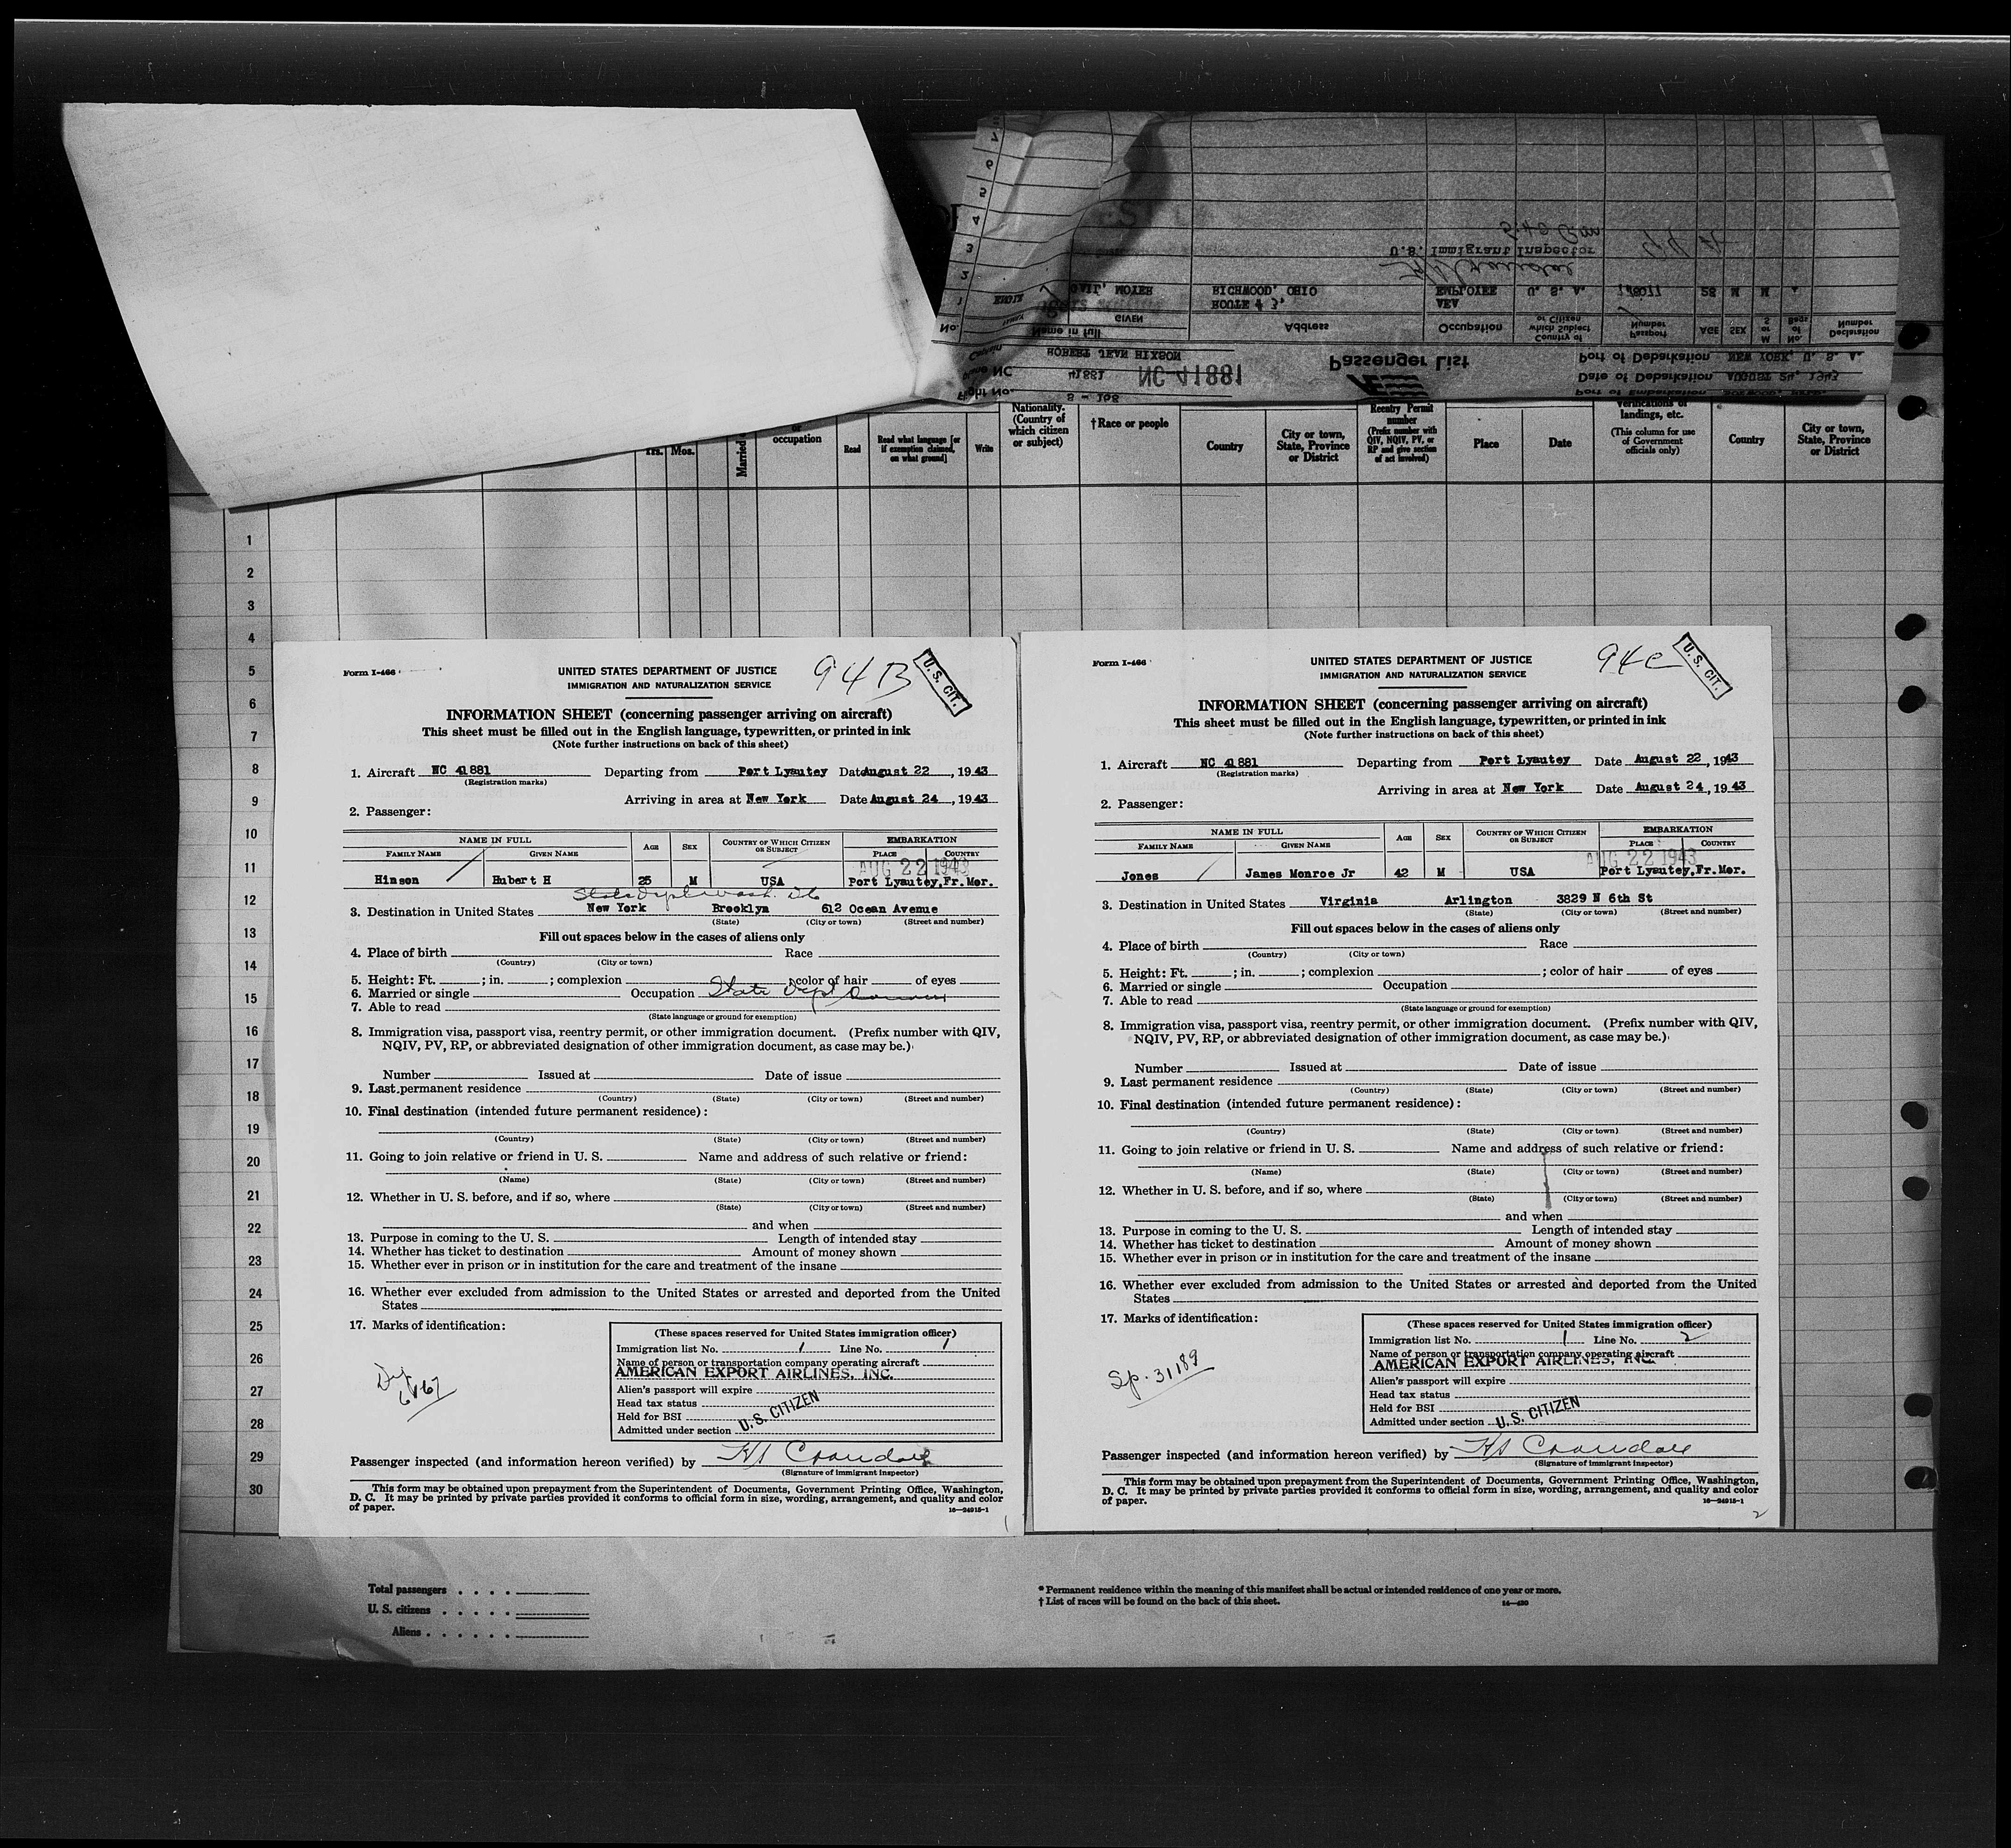 Flight No. 8 - 168
Plane NC 41881 NC 41881
Captain ROBERT JEAN HIXSON
Passenger List
Port of Debarkation NEW YORK, U. S. A.
Date of Debarkation AUGUST 24, 1943
Port of Embarkation
No. Name in full Address Occupation Country of which Subject or Citizen Passport Number AGE SEX M or S No. of Bags Declaration Number
FAMILY GIVEN
1 ROUTE # 3, AEA
RICHWOOD, OHIO EMPLOYEE U. S. A. 28 M M
2
U.S. Immigrant Inspector
3
4
5
6
7
Yrs. Mos.
Married
or occupation
Read
Read what language [or if exemption claimed, on what ground]
Write
Nationality. (Country of which citizen or subject)
† Race or people
Country
City or town, State, Province or District
Reentry Permit number (Prefix number with QIV, NQIV, PV, or RP and give section of act involved)
Place
Date
verifications of landings, etc. (This column for use of Government officials only)
Country
City or town, State, Province or District
1
2
3
4
5
6
7
8
9
10
11
12
13
14
15
16
17
18
19
20
21
22
23
24
25
26
27
28
29
30
Form I-466
94B
U.S. CIT.
UNITED STATES DEPARTMENT OF JUSTICE
IMMIGRATION AND NATURALIZATION SERVICE
INFORMATION SHEET (concerning passenger arriving on aircraft)
This sheet must be filled out in the English language, typewritten, or printed in ink
(Note further instructions on back of this sheet)
1. Aircraft NC 41881 Departing from Port Lyautey Date August 22, 1943
(Registration marks)
Arriving in area at New York Date August 24, 1943
2. Passenger:
NAME IN FULL AGE SEX COUNTRY OF WHICH CITIZEN OR SUBJECT EMBARKATION
FAMILY NAME GIVEN NAME PLACE COUNTRY
AUG 22 1943
Hinson Hubert H 25 M USA Port Lyautey,Fr.Mor.
State Dept Wash. DC
3. Destination in United States New York Brooklyn 612 Ocean Avenue
(State) (City or town) (Street and number)
Fill out spaces below in the cases of aliens only
4. Place of birth Race
(Country) (City or town)
5. Height: Ft. ; in. ; complexion ; color of hair of eyes
6. Married or single Occupation State Dept
7. Able to read
(State language or ground for exemption)
8. Immigration visa, passport visa, reentry permit, or other immigration document. (Prefix number with QIV,
NQIV, PV, RP, or abbreviated designation of other immigration document, as case may be.)
Number Issued at Date of issue
9. Last permanent residence
(Country) (State) (City or town) (Street and number)
10. Final destination (intended future permanent residence):
(Country) (State) (City or town) (Street and number)
11. Going to join relative or friend in U. S. Name and address of such relative or friend:
(Name) (State) (City or town) (Street and number)
12. Whether in U. S. before, and if so, where
(State) (City or town) (Street and number)
and when
13. Purpose in coming to the U. S. Length of intended stay
14. Whether has ticket to destination Amount of money shown
15. Whether ever in prison or in institution for the care and treatment of the insane
16. Whether ever excluded from admission to the United States or arrested and deported from the United
States
17. Marks of identification:
(These spaces reserved for United States immigration officer)
Immigration list No. 1 Line No. 1
Name of person or transportation company operating aircraft
AMERICAN EXPORT AIRLINES, INC.
Alien's passport will expire
Head tax status
Held for BSI
Admitted under section U.S. CITIZEN
Passenger inspected (and information hereon verified) by
(Signature of immigrant inspector)
This form may be obtained upon prepayment from the Superintendent of Documents, Government Printing Office, Washington,
D. C. It may be printed by private parties provided it conforms to official form in size, wording, arrangement, and quality and color
of paper. 16—24915-1
1
Form I-466
94C
U.S. CIT.
UNITED STATES DEPARTMENT OF JUSTICE
IMMIGRATION AND NATURALIZATION SERVICE
INFORMATION SHEET (concerning passenger arriving on aircraft)
This sheet must be filled out in the English language, typewritten, or printed in ink
(Note further instructions on back of this sheet)
1. Aircraft NC 41881 Departing from Port Lyautey Date August 22, 1943
(Registration marks)
Arriving in area at New York Date August 24, 1943
2. Passenger:
NAME IN FULL AGE SEX COUNTRY OF WHICH CITIZEN OR SUBJECT EMBARKATION
FAMILY NAME GIVEN NAME PLACE COUNTRY
AUG 22 1943
Jones James Monroe Jr 42 M USA Port Lyautey,Fr.Mor.
3. Destination in United States Virginia Arlington 3829 N 6th St
(State) (City or town) (Street and number)
Fill out spaces below in the cases of aliens only
4. Place of birth Race
(Country) (City or town)
5. Height: Ft. ; in. ; complexion ; color of hair of eyes
6. Married or single Occupation
7. Able to read
(State language or ground for exemption)
8. Immigration visa, passport visa, reentry permit, or other immigration document. (Prefix number with QIV,
NQIV, PV, RP, or abbreviated designation of other immigration document, as case may be.)
Number Issued at Date of issue
9. Last permanent residence
(Country) (State) (City or town) (Street and number)
10. Final destination (intended future permanent residence):
(Country) (State) (City or town) (Street and number)
11. Going to join relative or friend in U. S. Name and address of such relative or friend:
(Name) (State) (City or town) (Street and number)
12. Whether in U. S. before, and if so, where
(State) (City or town) (Street and number)
and when
13. Purpose in coming to the U. S. Length of intended stay
14. Whether has ticket to destination Amount of money shown
15. Whether ever in prison or in institution for the care and treatment of the insane
16. Whether ever excluded from admission to the United States or arrested and deported from the United
States
17. Marks of identification:
Sp. 31189
(These spaces reserved for United States immigration officer)
Immigration list No. 1 Line No. 2
Name of person or transportation company operating aircraft
AMERICAN EXPORT AIRLINES, INC.
Alien's passport will expire
Head tax status
Held for BSI
Admitted under section U.S. CITIZEN
Passenger inspected (and information hereon verified) by
(Signature of immigrant inspector)
This form may be obtained upon prepayment from the Superintendent of Documents, Government Printing Office, Washington,
D. C. It may be printed by private parties provided it conforms to official form in size, wording, arrangement, and quality and color
of paper. 16—24915-1
2
Total passengers . . . .
U. S. citizens . . . . .
Aliens . . . . . .
* Permanent residence within the meaning of this manifest shall be actual or intended residence of one year or more.
† List of races will be found on the back of this sheet.